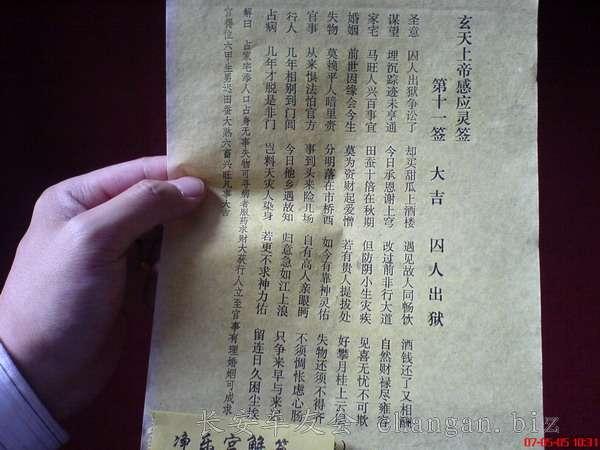 玄天上帝感应灵签
第十一签 大吉 囚人出狱
圣意 囚人出狱争讼了 却买甜瓜上酒楼 遇见故人同畅饮 酒钱还了又相酬
谋望 埋沉踪迹未亨通 今日承恩谢上穹 改过前非行大道 自然财禄尽雍容
家宅 马旺人兴百事宜 田蚕十倍在秋期 但防阴小生灾疾 见喜无忧不可欺
婚姻 前世因缘会今生 莫为资财起爱憎 若有贵人提拔处 好攀月桂上云
失物 莫赖平人暗里责 分明落在市桥西 如今有靠神灵佑 失物还须不得齐
官事 从来惧法怕官方 事到头来险几场 自有高人亲眼眄 不须惆怅虑心肠
行人 几年相别到门闾 今日他乡遇故知 归意急如江上浪 只争来早与来
占病 几年才脱是非门 岂料天灾人染身 若更不求神力佑 留连日久困尘埃
解曰 占家宅添人口占身无事失物可寻病者服药求财大获行人立至官事有理婚姻可成求
官得位六甲生男迟田蚕大熟六畜兴旺凡事大吉
净乐宫解签
长安车友会 changan.biz
07-05-05 10:31